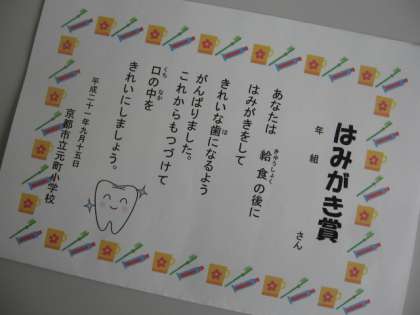 はみがき賞
年 組 さん
あなたは 給食の後に
はみがきをして
きれいな歯になるよう
がんばりました。
これからもつづけて
口の中を
きれいにしましょう。
平成二十一年九月十五日
京都市立元町小学校